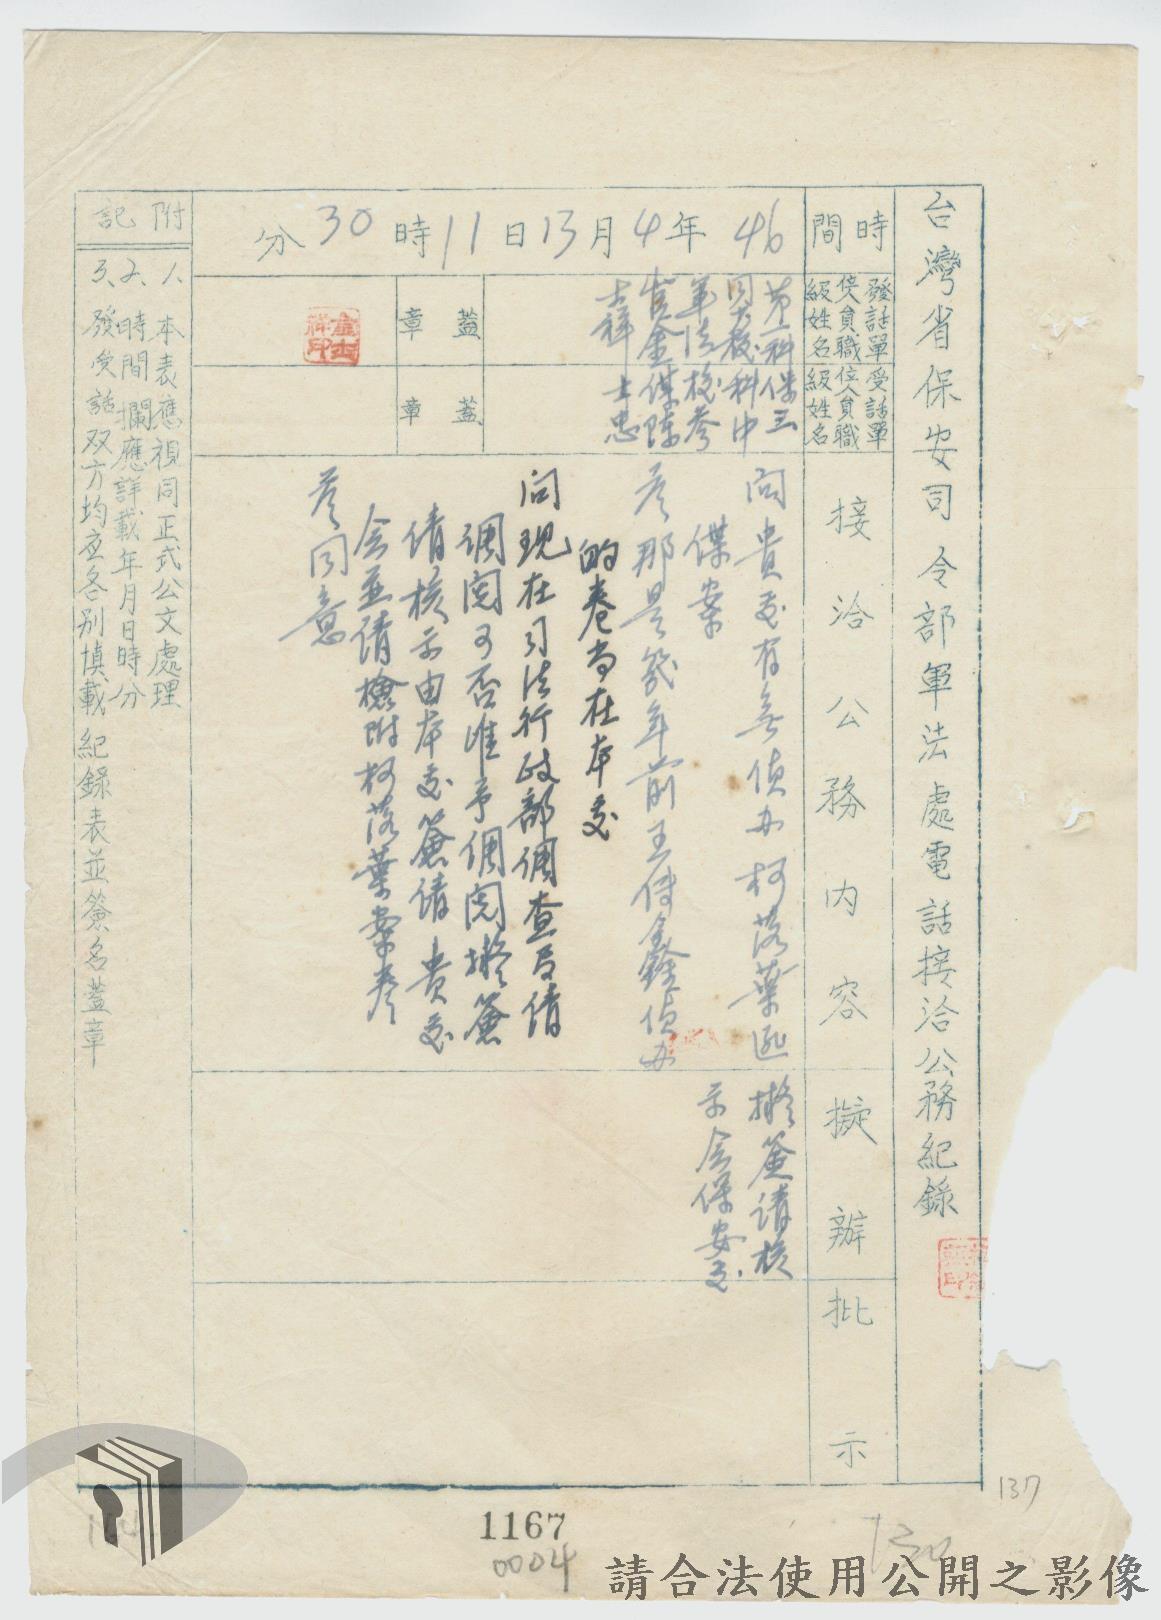 台灣省保安司令部軍法處電話接洽公務紀錄
時間
46年4月13日11時30分
發話單位員職級姓名
受話單位員職級姓名
第一科
軍法
金
士祥
保三科中校參謀陳士忠
蓋章
蓋章
接洽公務內容
問貴處有無偵办柯落葉匪
諜案
答那是幾年前王傳鑫偵办
的卷尚在本處
問現在司法行政部調查局請
調閱可否准予調閱擬簽
請核示由本處簽請貴處
会並請檢附柯落葉案卷
答同意
擬辦
擬簽請核
示会保安處
批示
附記
1、本表應視同正式公文處理
2、時間欄應詳載年月日時分
3、發受話双方均应各別填載紀錄表並簽名蓋章
137
1167
0004
請合法使用公開之影像